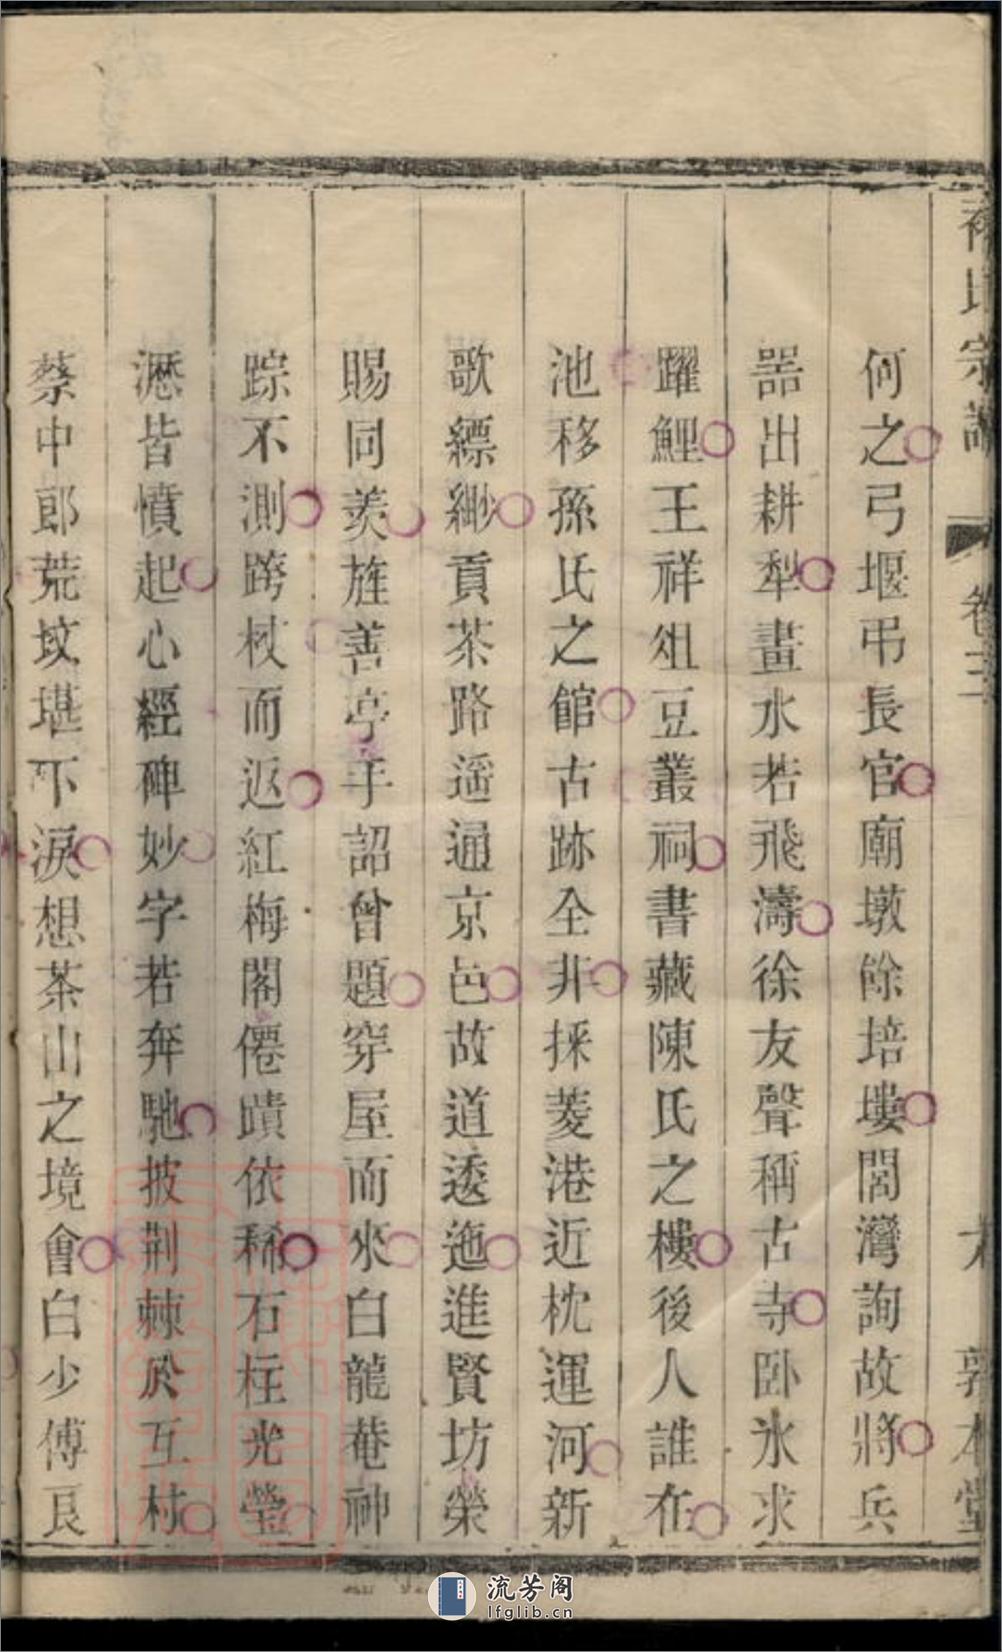 氏宗譜 卷三 六 敦本堂
何之弓堰弔長官廟墩餘培塿閭灣詢故將兵
噐出耕犁畫水若飛濤徐友聲稱古寺卧氷求
躍鯉王祥俎豆叢祠書藏陳氏之樓後人誰在
池移孫氏之館古跡全非採菱港近枕運河新
歌縹緲貢茶路遥通京邑故道逶迤進賢坊榮
賜同羨旌善亭手詔曾題穿屋而來白龍菴神
踪不測跨杖而返紅梅閣僊蹟依稀石柱光瑩
瀝皆憤起心經碑妙字若奔馳披荆棘於互村
蔡中郎荒坟堪下淚想茶山之境會白少傅良
流芳阁
lfglib.cn